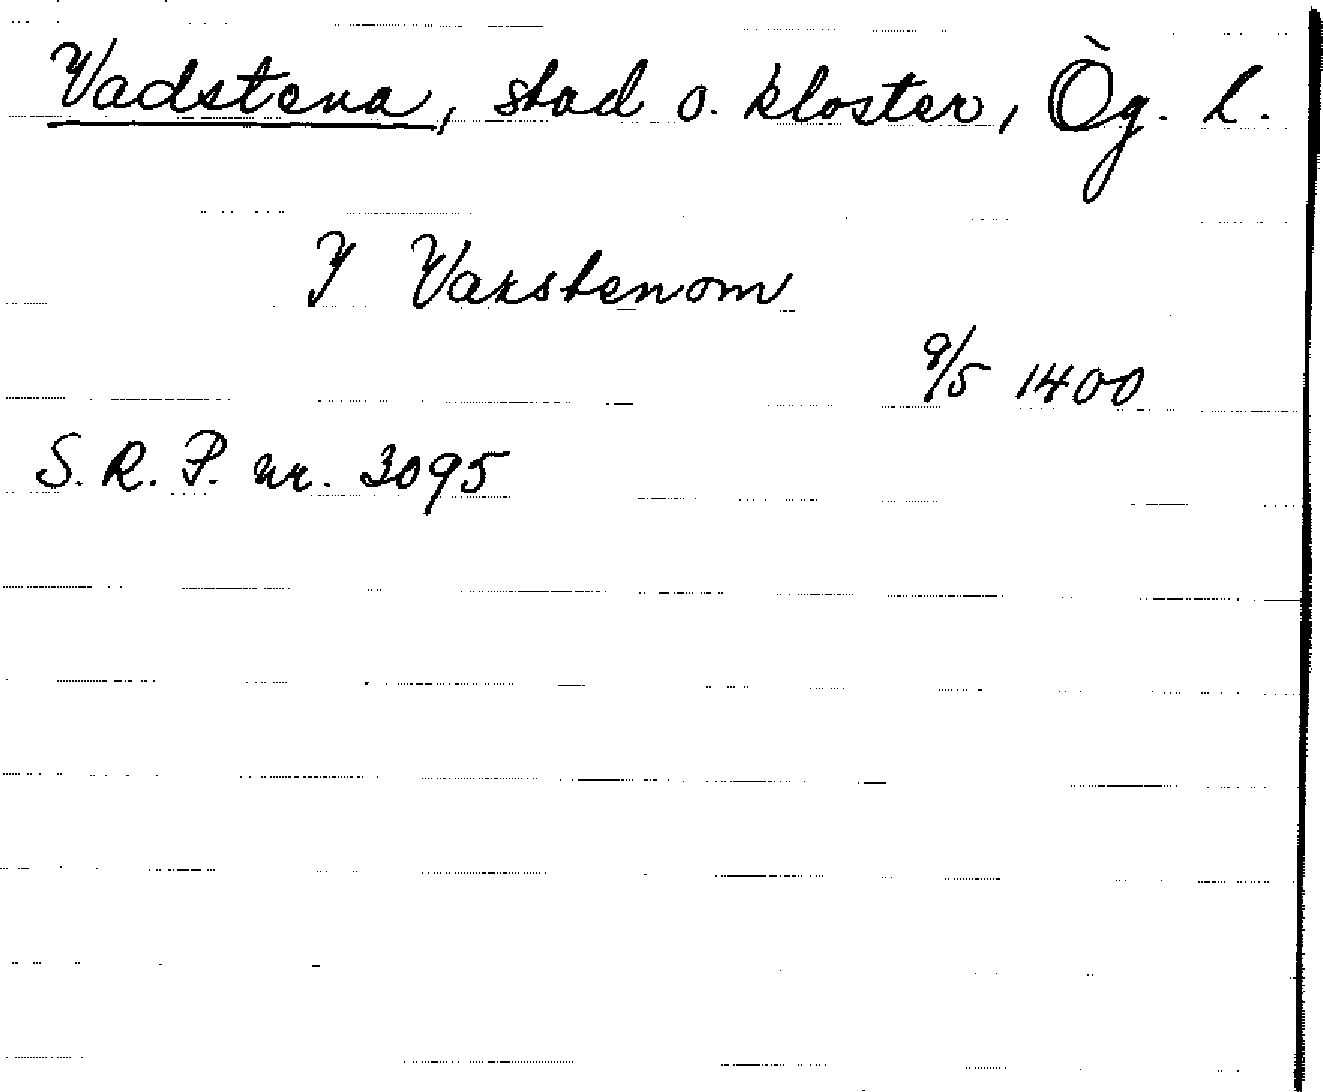 Vadstena, stad o. kloster, Ög. l.
I Vazstenom
9/5 1400
S. R. P. nr. 3095